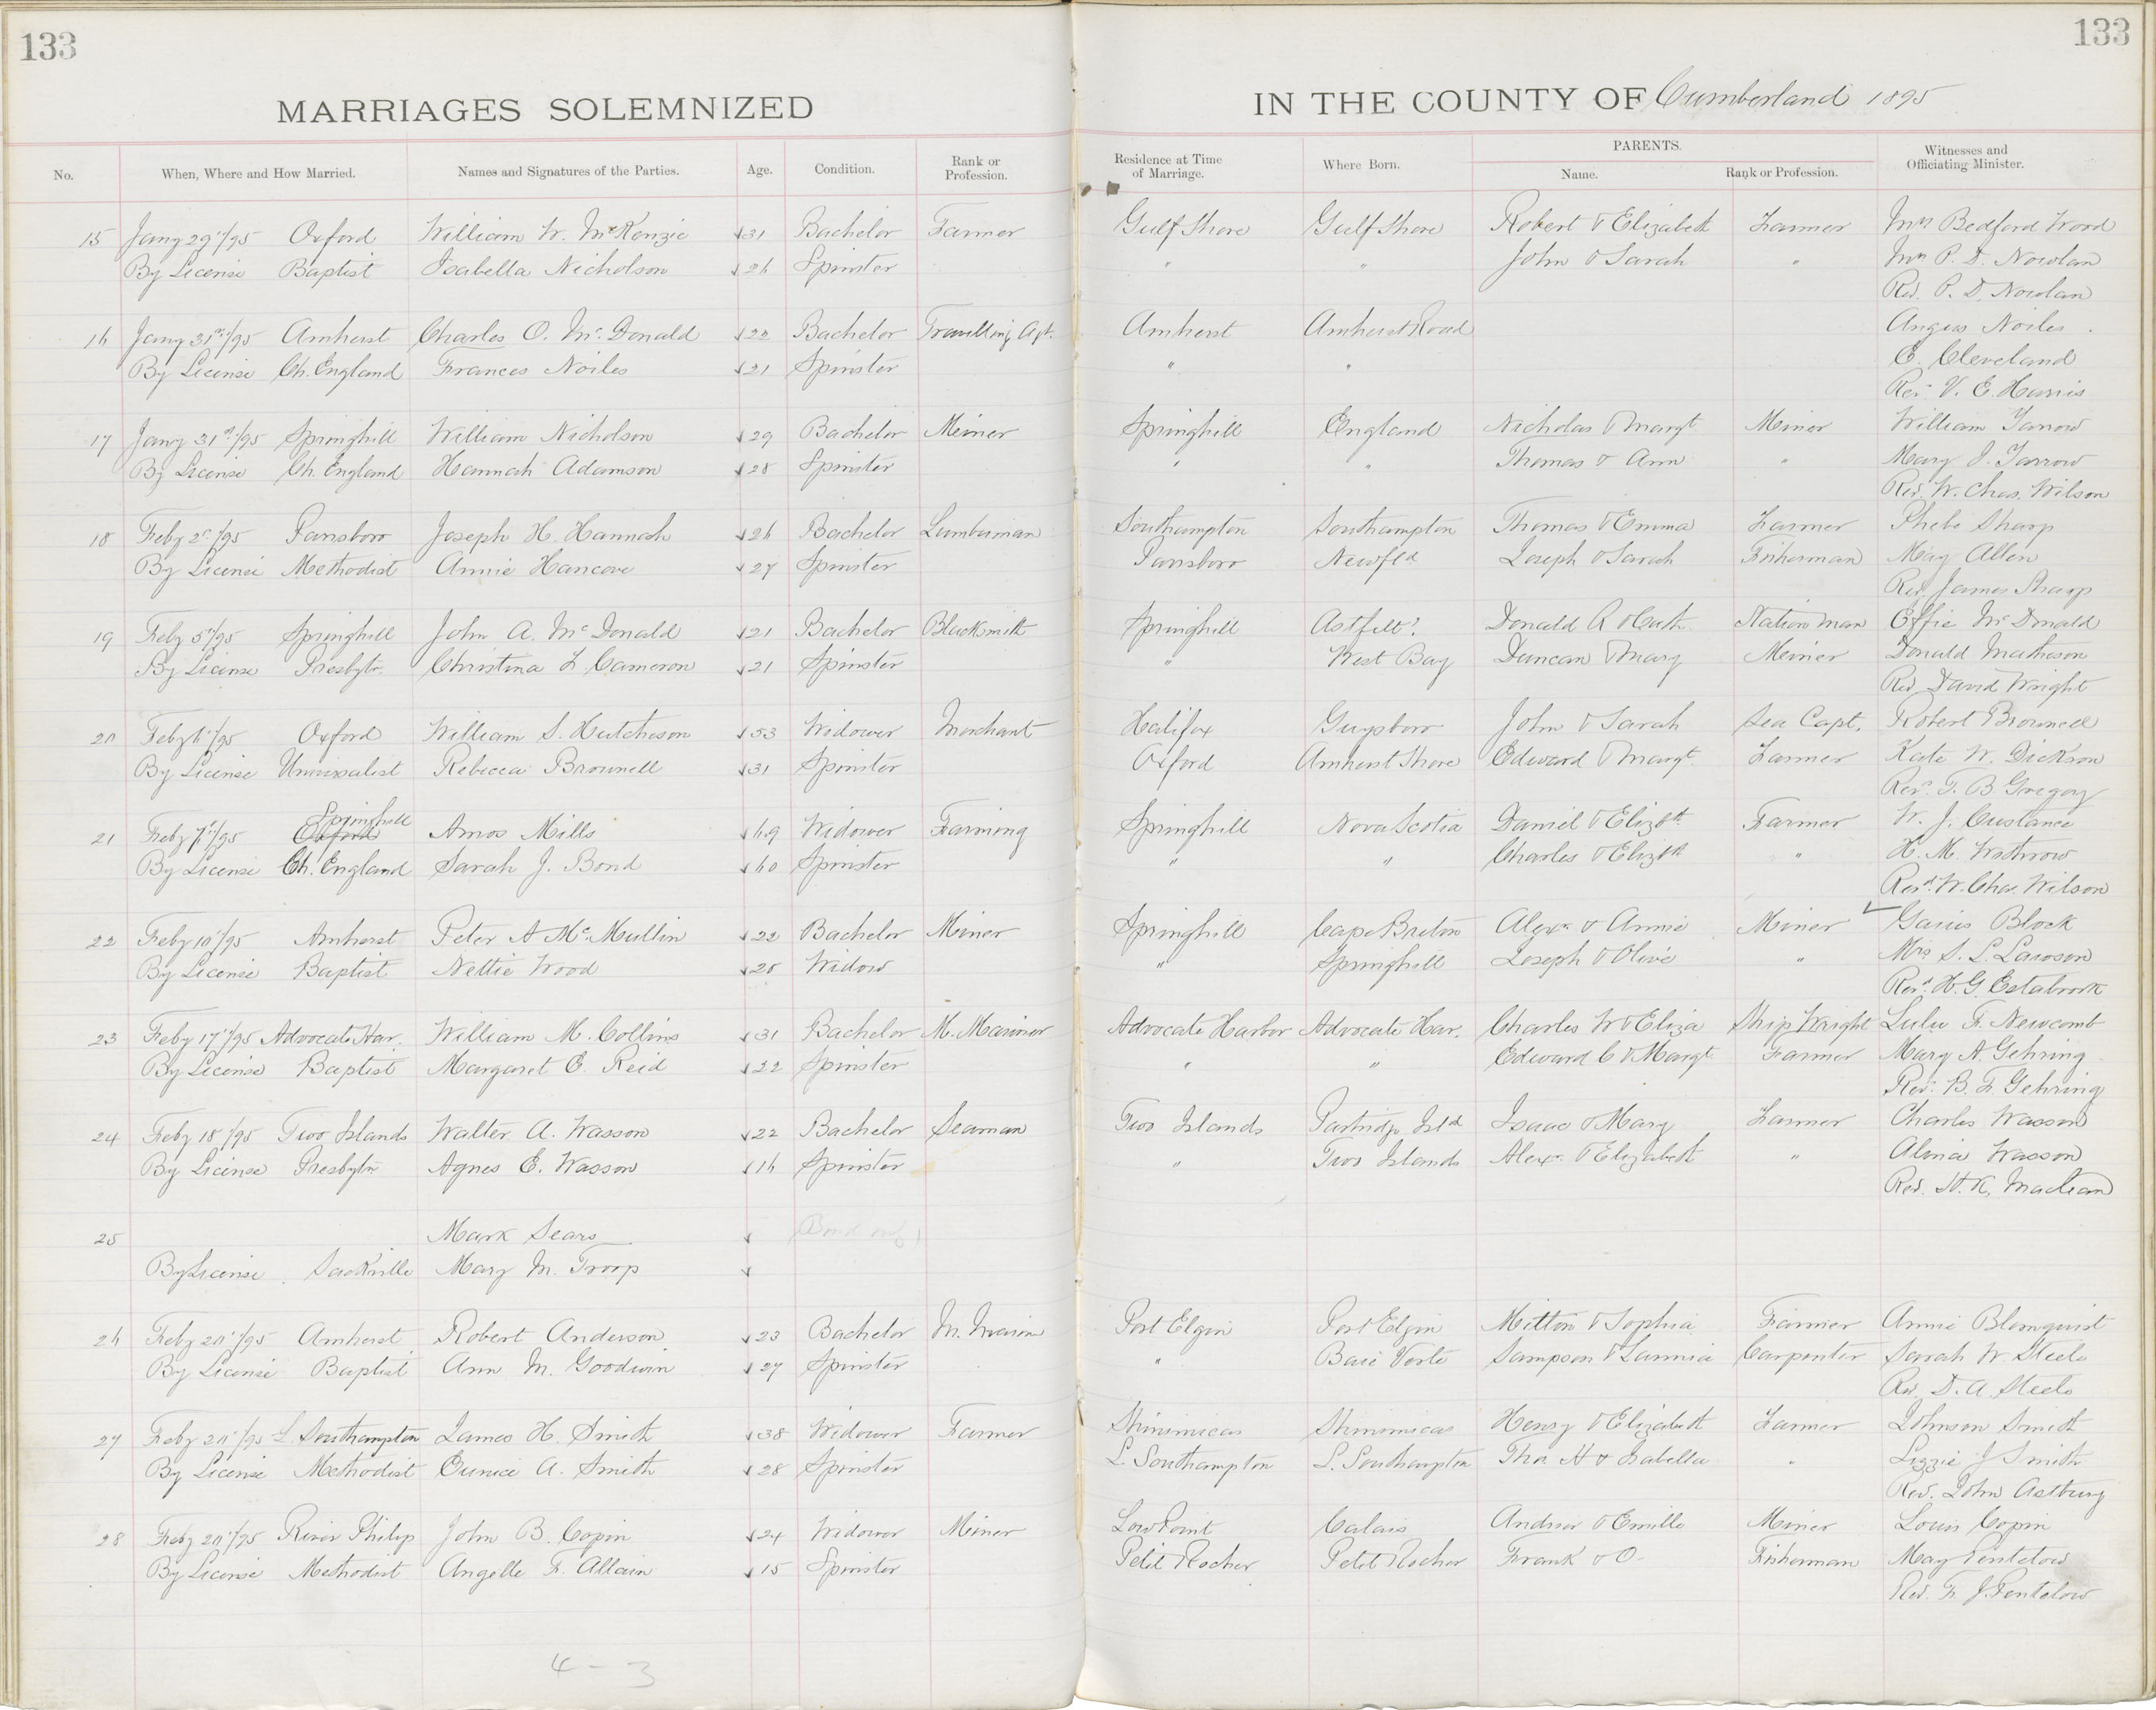 133
133
MARRIAGES SOLEMNIZED
IN THE COUNTY OF Cumberland 1895
No. When, Where and How Married. Names and Signatures of the Parties. Age. Condition. Rank or Profession. Residence at Time of Marriage. Where Born. PARENTS. Name. Rank or Profession. Witnesses and Officiating Minister.
15 Jany 29/95 Oxford William W. McKenzie 31 Bachelor Farmer Gulf Shore Gulf Shore Robert & Elizabeth Farmer Mrs Bedford Wood
By License Baptist Isabella Nicholson 26 Spinster " " John & Sarah " Mrs P. D. Nowlan
Rev. P. D. Nowlan
16 Jany 31st/95 Amherst Charles O. McDonald 22 Bachelor Travelling Agt. Amherst Amherst Road Angus Noiles
By License Ch. England Frances Noiles 21 Spinster " " C. Cleveland
Rev. V. E. Harris
17 Jany 31st/95 Springhill William Nicholson 29 Bachelor Meiner Springhill England Nicholas & Margt Meiner William Yarrow
By License Ch. England Hannah Adamson 28 Spinster " " Thomas & Ann " Mary J. Yarrow
Rev. W. Chas. Wilson
18 Feby 2/95 Parrsboro Joseph H. Hannah 26 Bachelor Lumberman Southampton Southampton Thomas & Emma Farmer Phebe Sharp
By License Methodist Annie Hancove 27 Spinster Parrsboro Newfld Joseph & Sarah Fisherman May Allen
Rev. James Sharp
19 Feby 5/95 Springhill John A. McDonald 21 Bachelor Blacksmith Springhill Astfelt? Donald R & Cath. Station Man Effie McDonald
By License Presbytn. Christina F. Cameron 21 Spinster " West Bay Duncan & Mary Meiner Donald Matheson
Rev. David Wright
20 Feby 6/95 Oxford William S. Hutcheson 53 Widower Merchant Halifax Guysboro John & Sarah Sea Capt. Robert Brownell
By License Universalist Rebecca Brownell 31 Spinster Oxford Amherst Shore Edward & Margt. Farmer Kate W. Dickson
Rev. T. B. Gregory
Springhill
21 Feby 7/95 Oxford Amos Mills 69 Widower Farming Springhill Nova Scotia Daniel & Elizth. Farmer W. J. Custance
By License Ch. England Sarah J. Bond 60 Spinster " " Charles & Elizth " H. M. Wothrow
Revd. W. Chas. Wilson
22 Feby 10/95 Amherst Peter A McMullin 22 Bachelor Miner Springhill Cape Breton Alexr & Annie Miner Gaius Block
By License Baptist Nettie Wood 25 Widow " Springhill Joseph & Olive " Mrs S. L. Lawson
Revd. H. G. Estabrook
23 Feby 17/95 Advocate Har. William M. Collins 31 Bachelor M. Mariner Advocate Harbor Advocate Har. Charles W & Eliza Ship Wright Lulu F. Newcomb
By License Baptist Margaret E. Reid 22 Spinster " " Edward C & Margt. Farmer Mary A. Gehring
Rev. B. F. Gehring
24 Feby 18/95 Two Islands Walter A. Wasson 22 Bachelor Seaman Two Islands Partridge Isld Isaac & Mary Farmer Charles Wasson
By License Presbytn Agnes E. Wasson 16 Spinster " Two Islands Alexr. & Elizabeth " Almia Wasson
Rev. H. K. MacLean
25 Mark Sears Bond only
By License Sackville Mary M. Troop
26 Feby 20/95 Amherst Robert Anderson 23 Bachelor M. Marin Port Elgin Port Elgin Mitton & Sophia Farmer Annie Blomquist
By License Baptist Ann M. Goodwin 27 Spinster " Baie Verte Sampson & Lavinia Carpenter Sarah W. Steele
Rev. D. A. Steele
27 Feby 20/95 L. Southampton James H. Smith 38 Widower Farmer Shinimicas Shinimicas Henry & Elizabeth Farmer Johnson Smith
By License Methodist Eunice A. Smith 28 Spinster L. Southampton L. Southampton Thos H & Isabella " Lizzie J Smith
Rev. John Astbury
28 Feby 20/95 River Philip John B. Copin 24 Widower Miner Low Point Calais Andrew & Emille Miner Louis Copin
By License Methodist Angelle F. Allain 15 Spinster Petit Rocher Petit Rocher Frank & O- Fisherman May Pentelow
Rev. F. J. Pentelow
4-3